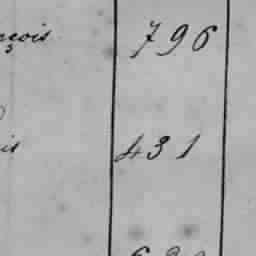 nçois 796
is 431